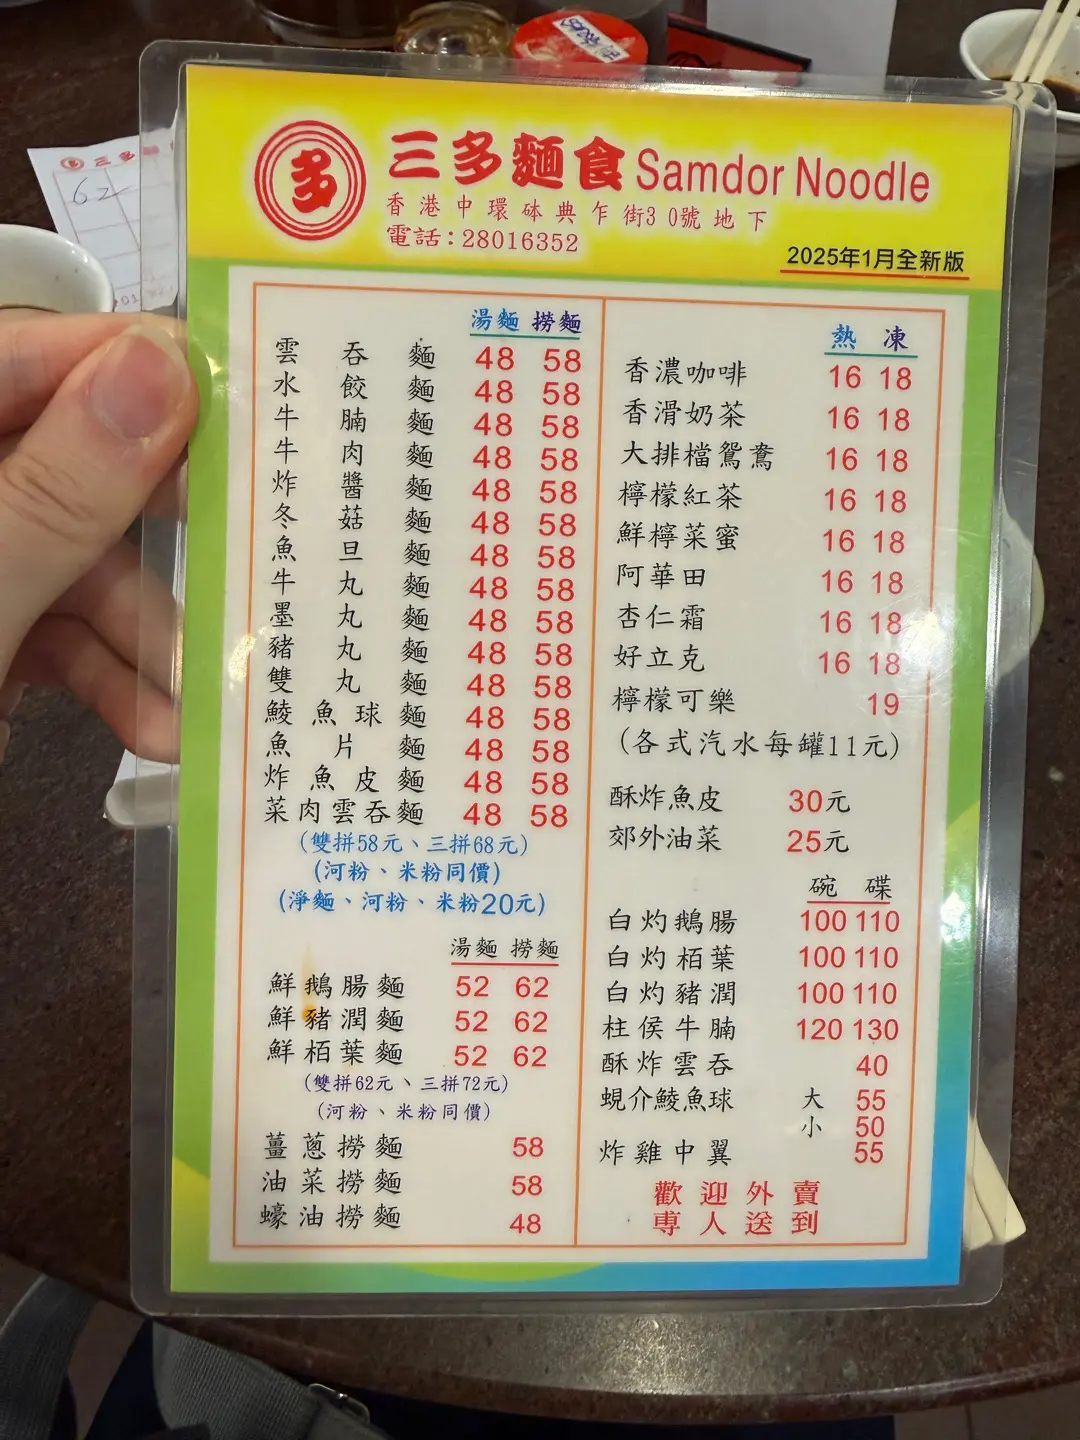 多
三多麵食 Samdor Noodle
香港中環砵典乍街30號地下
電話：28016352
2025年1月全新版
湯麵 撈麵
雲吞麵 48 58
水餃麵 48 58
牛腩麵 48 58
牛肉麵 48 58
炸醬麵 48 58
冬菇麵 48 58
魚旦麵 48 58
牛丸麵 48 58
墨丸麵 48 58
豬丸麵 48 58
雙丸麵 48 58
鯪魚球麵 48 58
魚片麵 48 58
炸魚皮麵 48 58
菜肉雲吞麵 48 58
(雙拼58元、三拼68元)
(河粉、米粉同價)
(淨麵、河粉、米粉20元)
湯麵 撈麵
鮮鵝腸麵 52 62
鮮豬潤麵 52 62
鮮栢葉麵 52 62
(雙拼62元、三拼72元)
(河粉、米粉同價)
薑蔥撈麵 58
油菜撈麵 58
蠔油撈麵 48
熱 凍
香濃咖啡 16 18
香滑奶茶 16 18
大排檔鴛鴦 16 18
檸檬紅茶 16 18
鮮檸菜蜜 16 18
阿華田 16 18
杏仁霜 16 18
好立克 16 18
檸檬可樂 19
(各式汽水每罐11元)
酥炸魚皮 30元
郊外油菜 25元
碗 碟
白灼鵝腸 100 110
白灼栢葉 100 110
白灼豬潤 100 110
柱侯牛腩 120 130
酥炸雲吞 40
蜆介鯪魚球 大 55
小 50
炸雞中翼 55
歡迎外賣
專人送到
三多
62